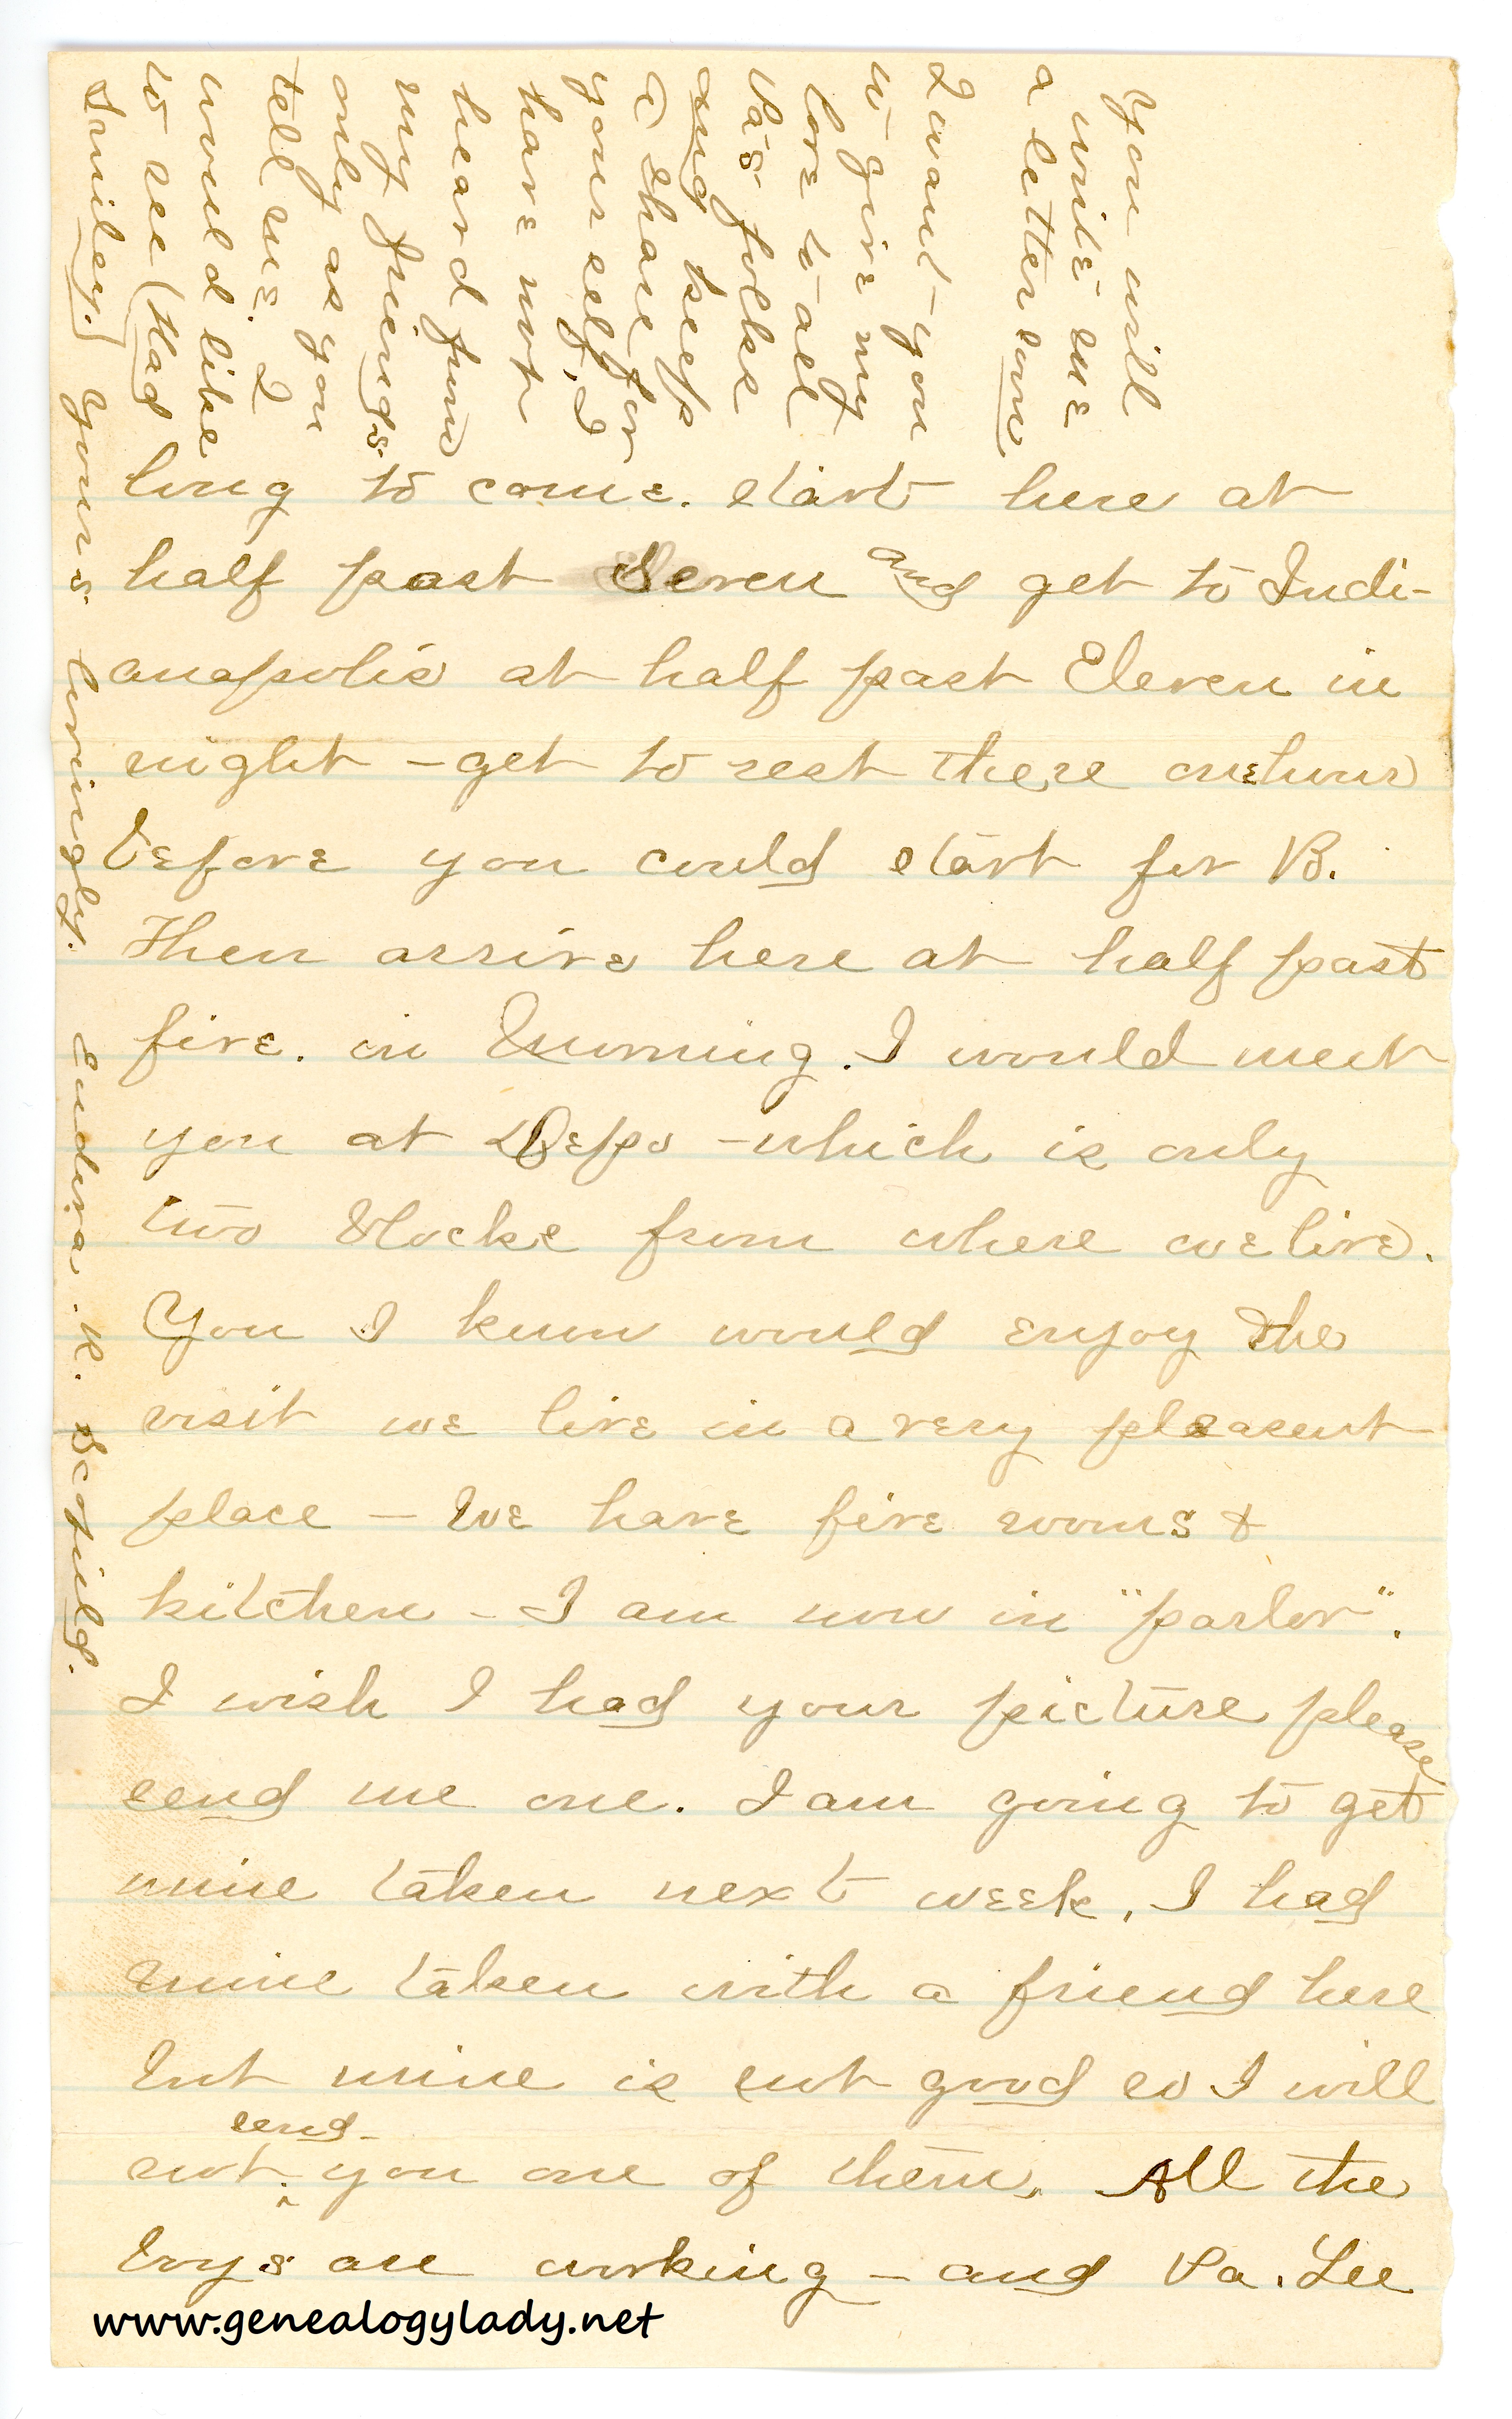 long to come. start here at
half past Seven and get to Indi-
anapolis at half past Eleven in
night - get to rest there one hour
before you could start for B.
Then arrive here at half past
five. in morning. I would meet
you at Depo - which is only
two blocks from where we live.
You I know would enjoy the
visit we live in a very pleasent
place - We have five rooms &
kitchen - I am now in "parlor".
I wish I had your picture please
send me one. I am going to get
mine taken next week. I had
mine taken with a friend here
but mine is not good so I will
not send you one of them. All the
boys are working - and Pa. Lee
You will
write me
a letter soon
I want you
to give my
love to all
Pa's folks
and keep
a share for
your self, I
have not
heard from
my friends.
only as you
tell me. I
would like
to see (Had
Smiley.) Yours lovingly. Eudora. R. Scofield.
www.genealogylady.net